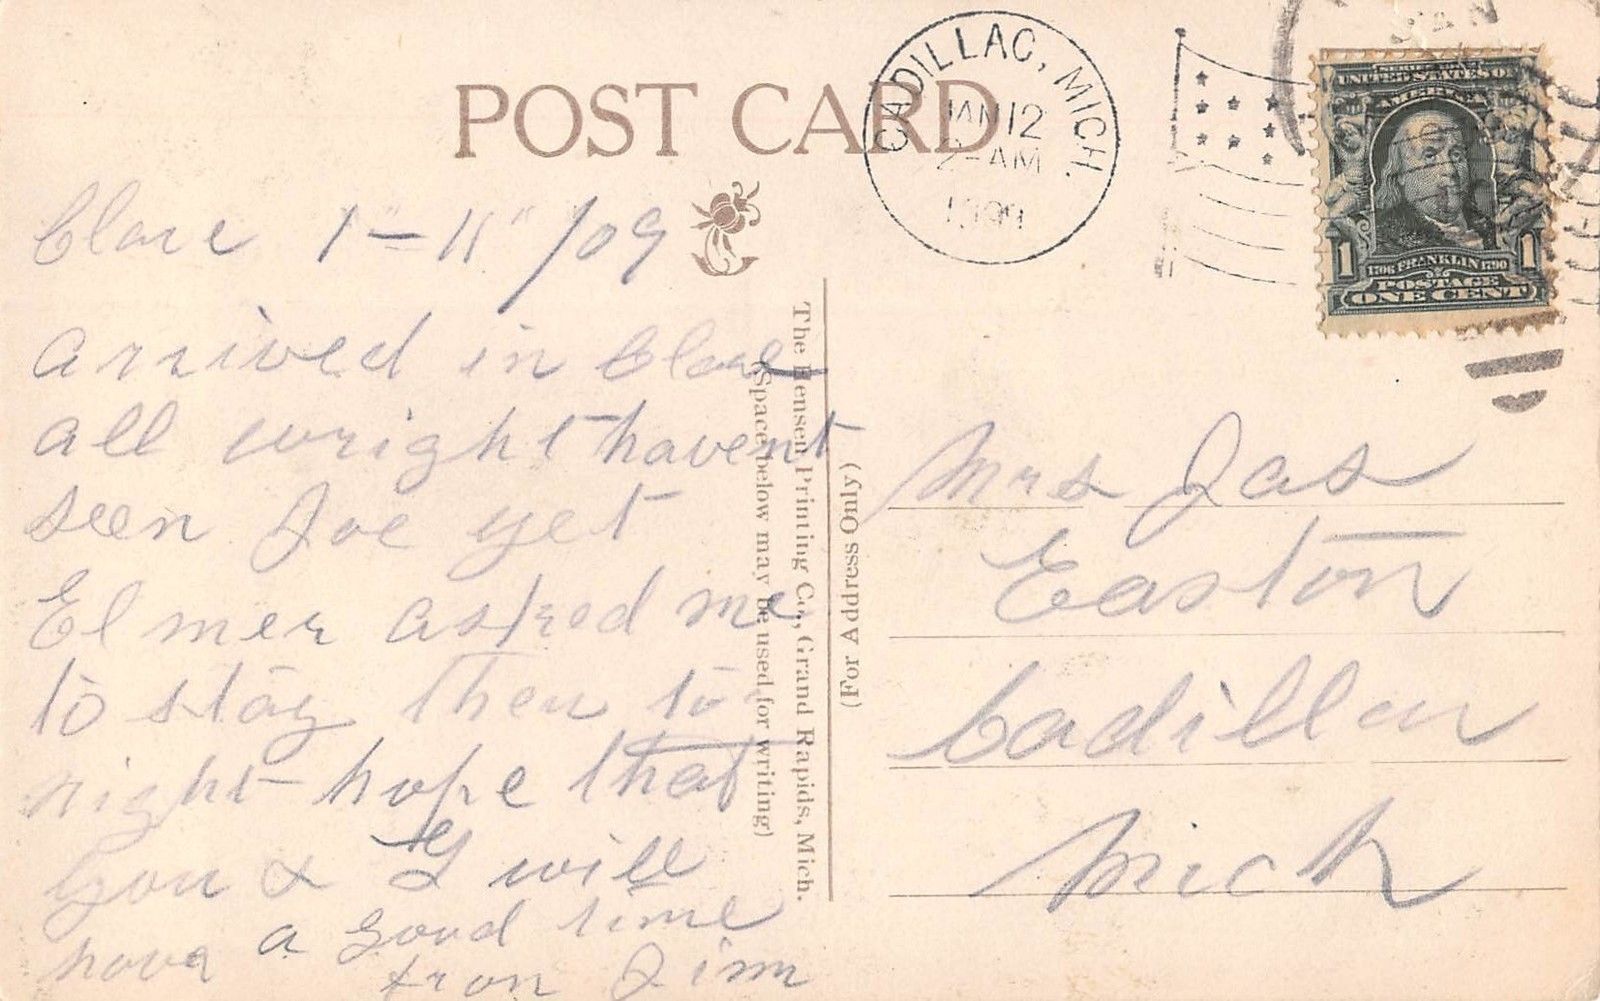 POST CARD
CADILLAC, MICH.
JAN 12
2-AM
1909
UNITED STATES OF
AMERICA
1 1
1706 FRANKLIN 1790
POSTAGE
ONE CENT
Clare 1"-11"/09
arrived in Clare
all wright havent
seen Joe yet
Elmer asked me
to stay then to
night hope that
you & I will
hava a good time
from Jim
The Hensen Printing Co., Grand Rapids, Mich.
(Space below may be used for writing)
(For Address Only)
Mrs Jas
Easton
Cadillac
Mich